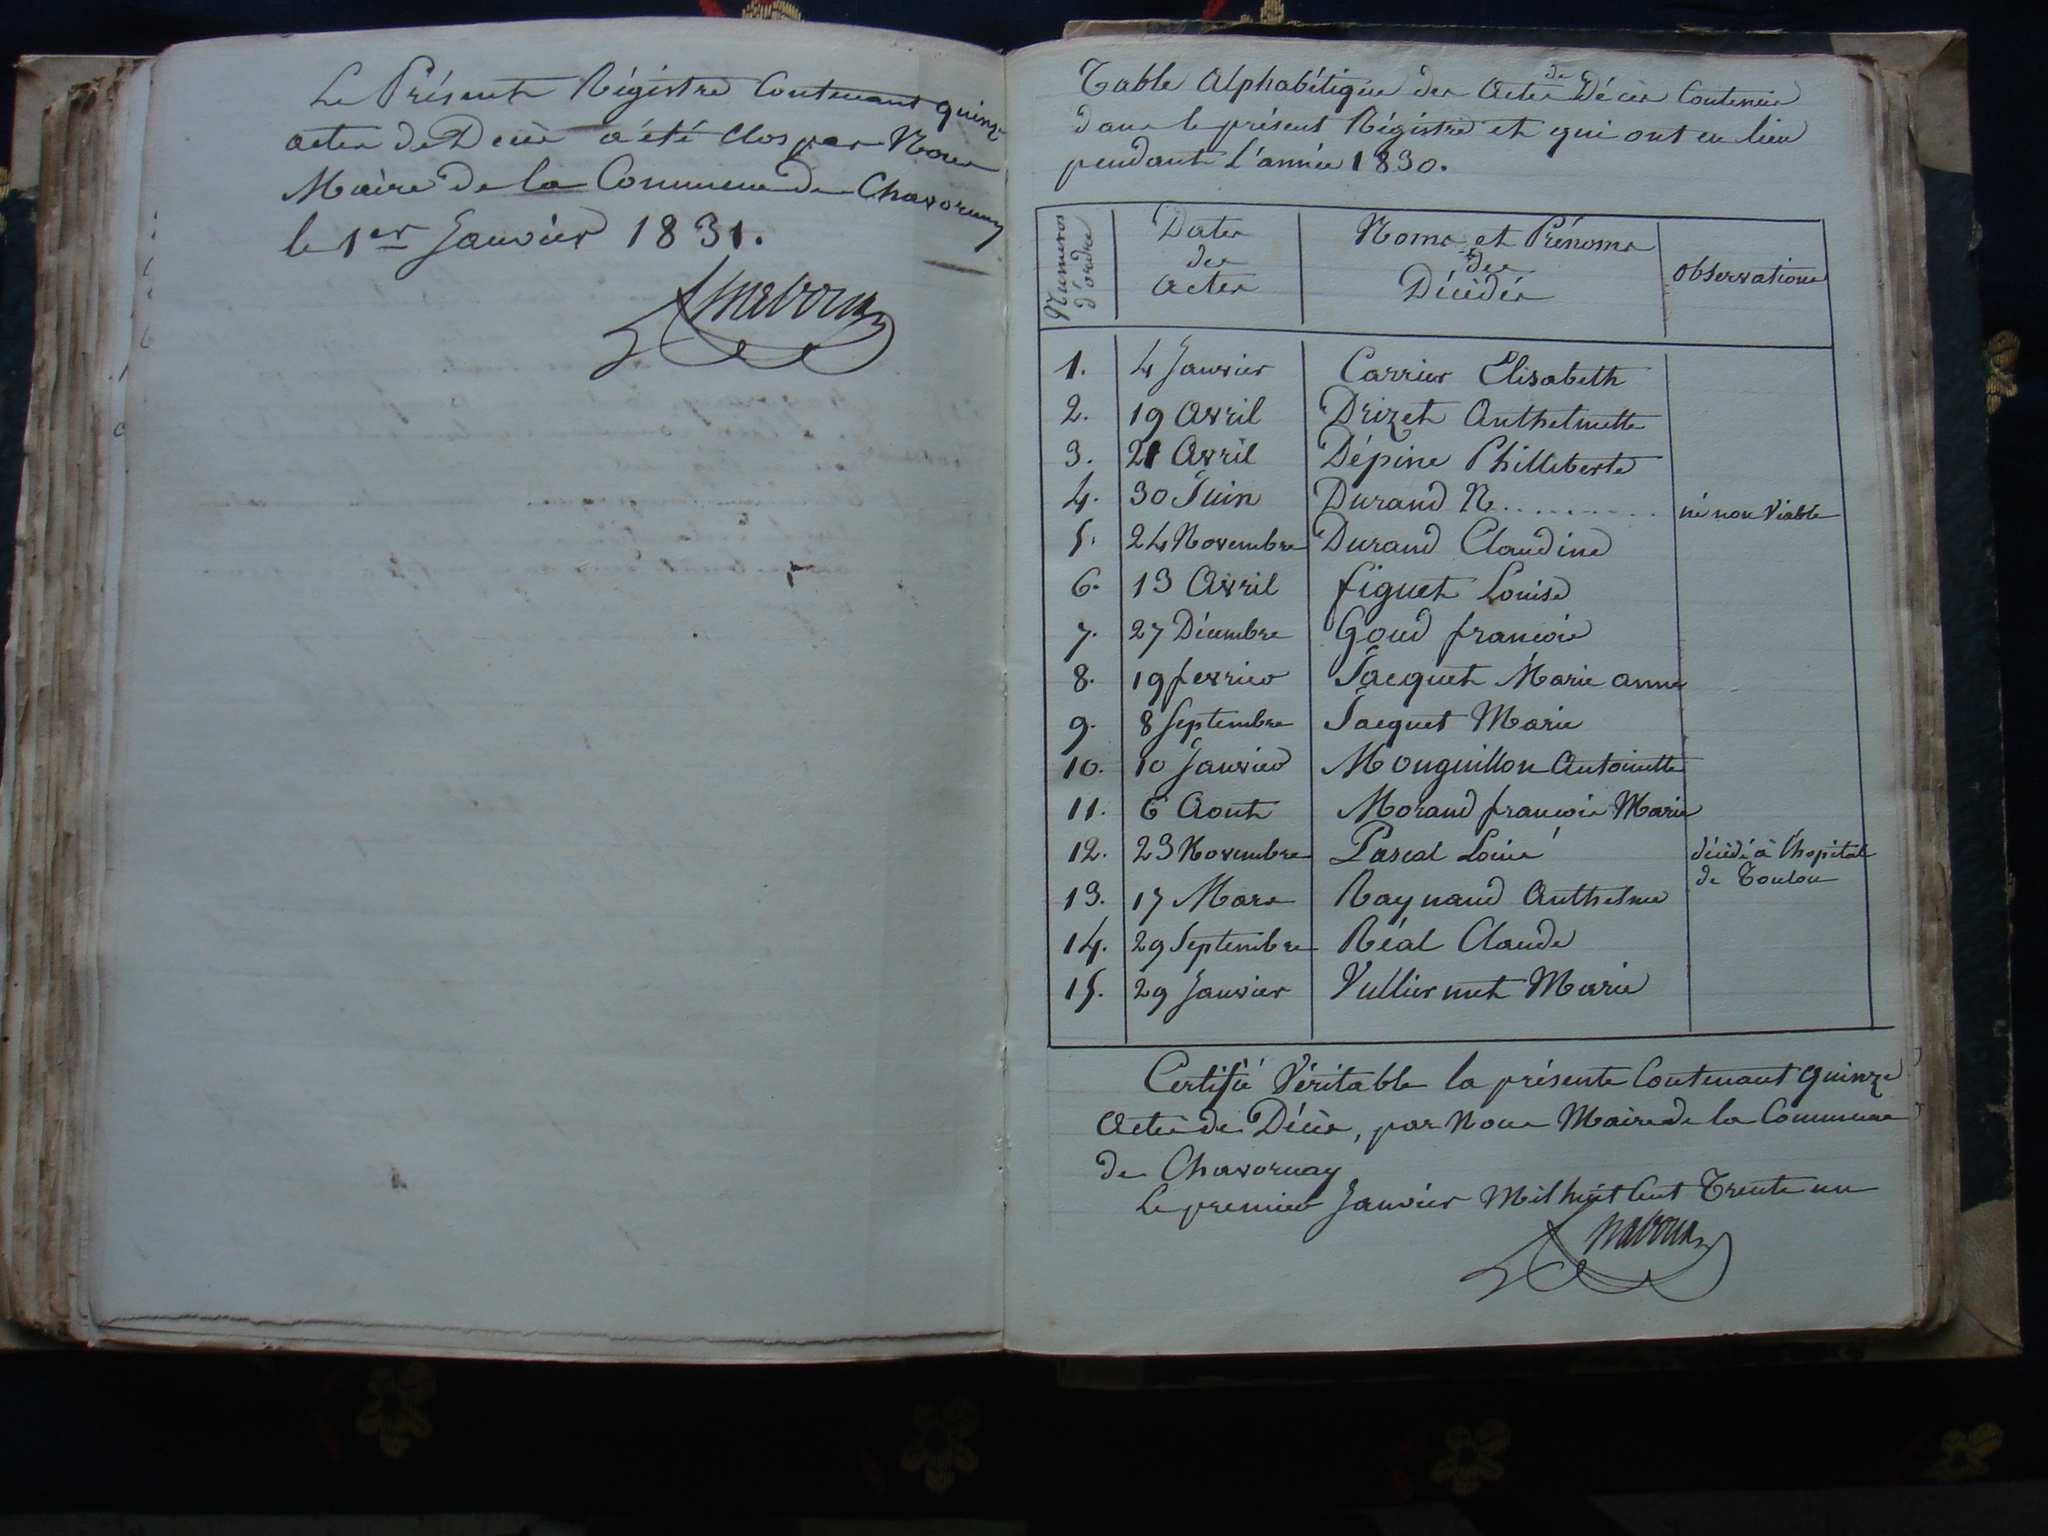 Le Présent Régistre Contenant quinze
actes de Décès a été Clos par Nous
Maire de la Commune de Chavornay
le 1er Janvier 1831.
Table Alphabétique des Actes de Décès Contenus
dans le présent Régistre et qui ont eu lieu
pendant L'année 1830.
Numéros d'ordre
Dates des Actes
Noms et Prénoms des Décédés
Observations
1. 4 Janvier Carrier Elisabeth
2. 19 Avril Drizet Anthelmette
3. 21 Avril Dépine Philleberte
4. 30 Juin Durand N.......... né non Viable
5. 24 Novembre Durand Claudine
6. 13 Avril figuet Louise
7. 27 Décembre Goud francois
8. 19 fevrier Jacquet Marie anne
9. 8 Septembre Jacquet Marie
10. 10 Janvier Monguillon Antoinette
11. 6 Aout Morand francois Marie
12. 23 Novembre Pascal Louis décédé à l'hopital
de Toulon
13. 17 Mars Raynaud Anthelme
14. 29 Septembre Réal Claude
15. 29 Janvier Vulliermet Marie
Certifié Véritable la présente Contenant quinze
Actes de Décès, par Nous Maire de la Commune
de Chavornay
Le premier Janvier Mil huit Cent Trente un